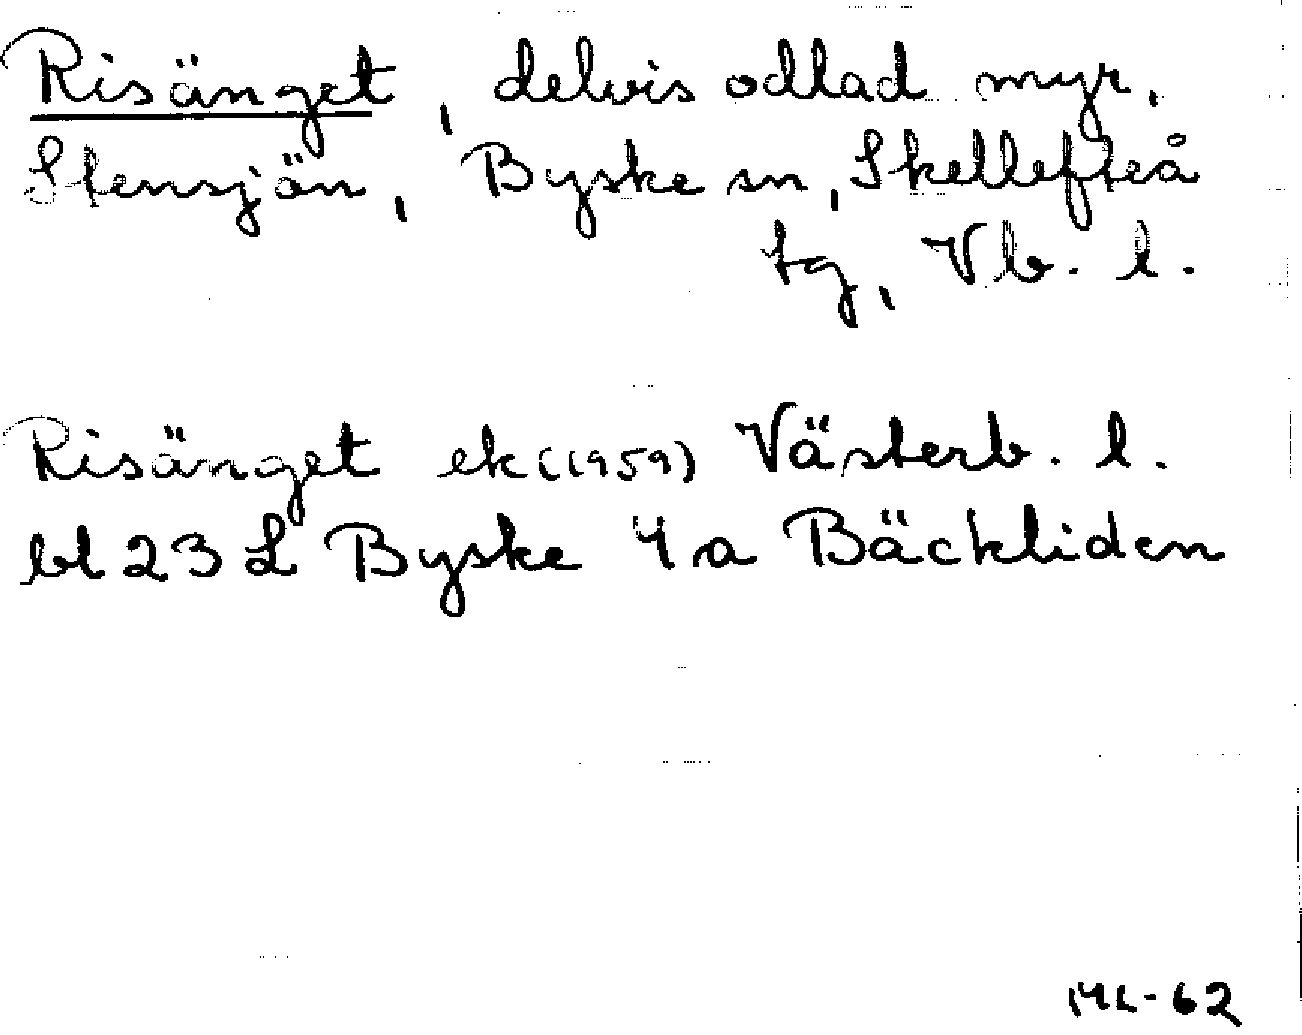 Risänget, delvis odlad myr,
Stensjön, Byske sn, Skellefteå
tg, Vb. l.
Risänget ek (1959) Västerb. l.
bl 23 L Byske 4 a Bäckliden
ML-62